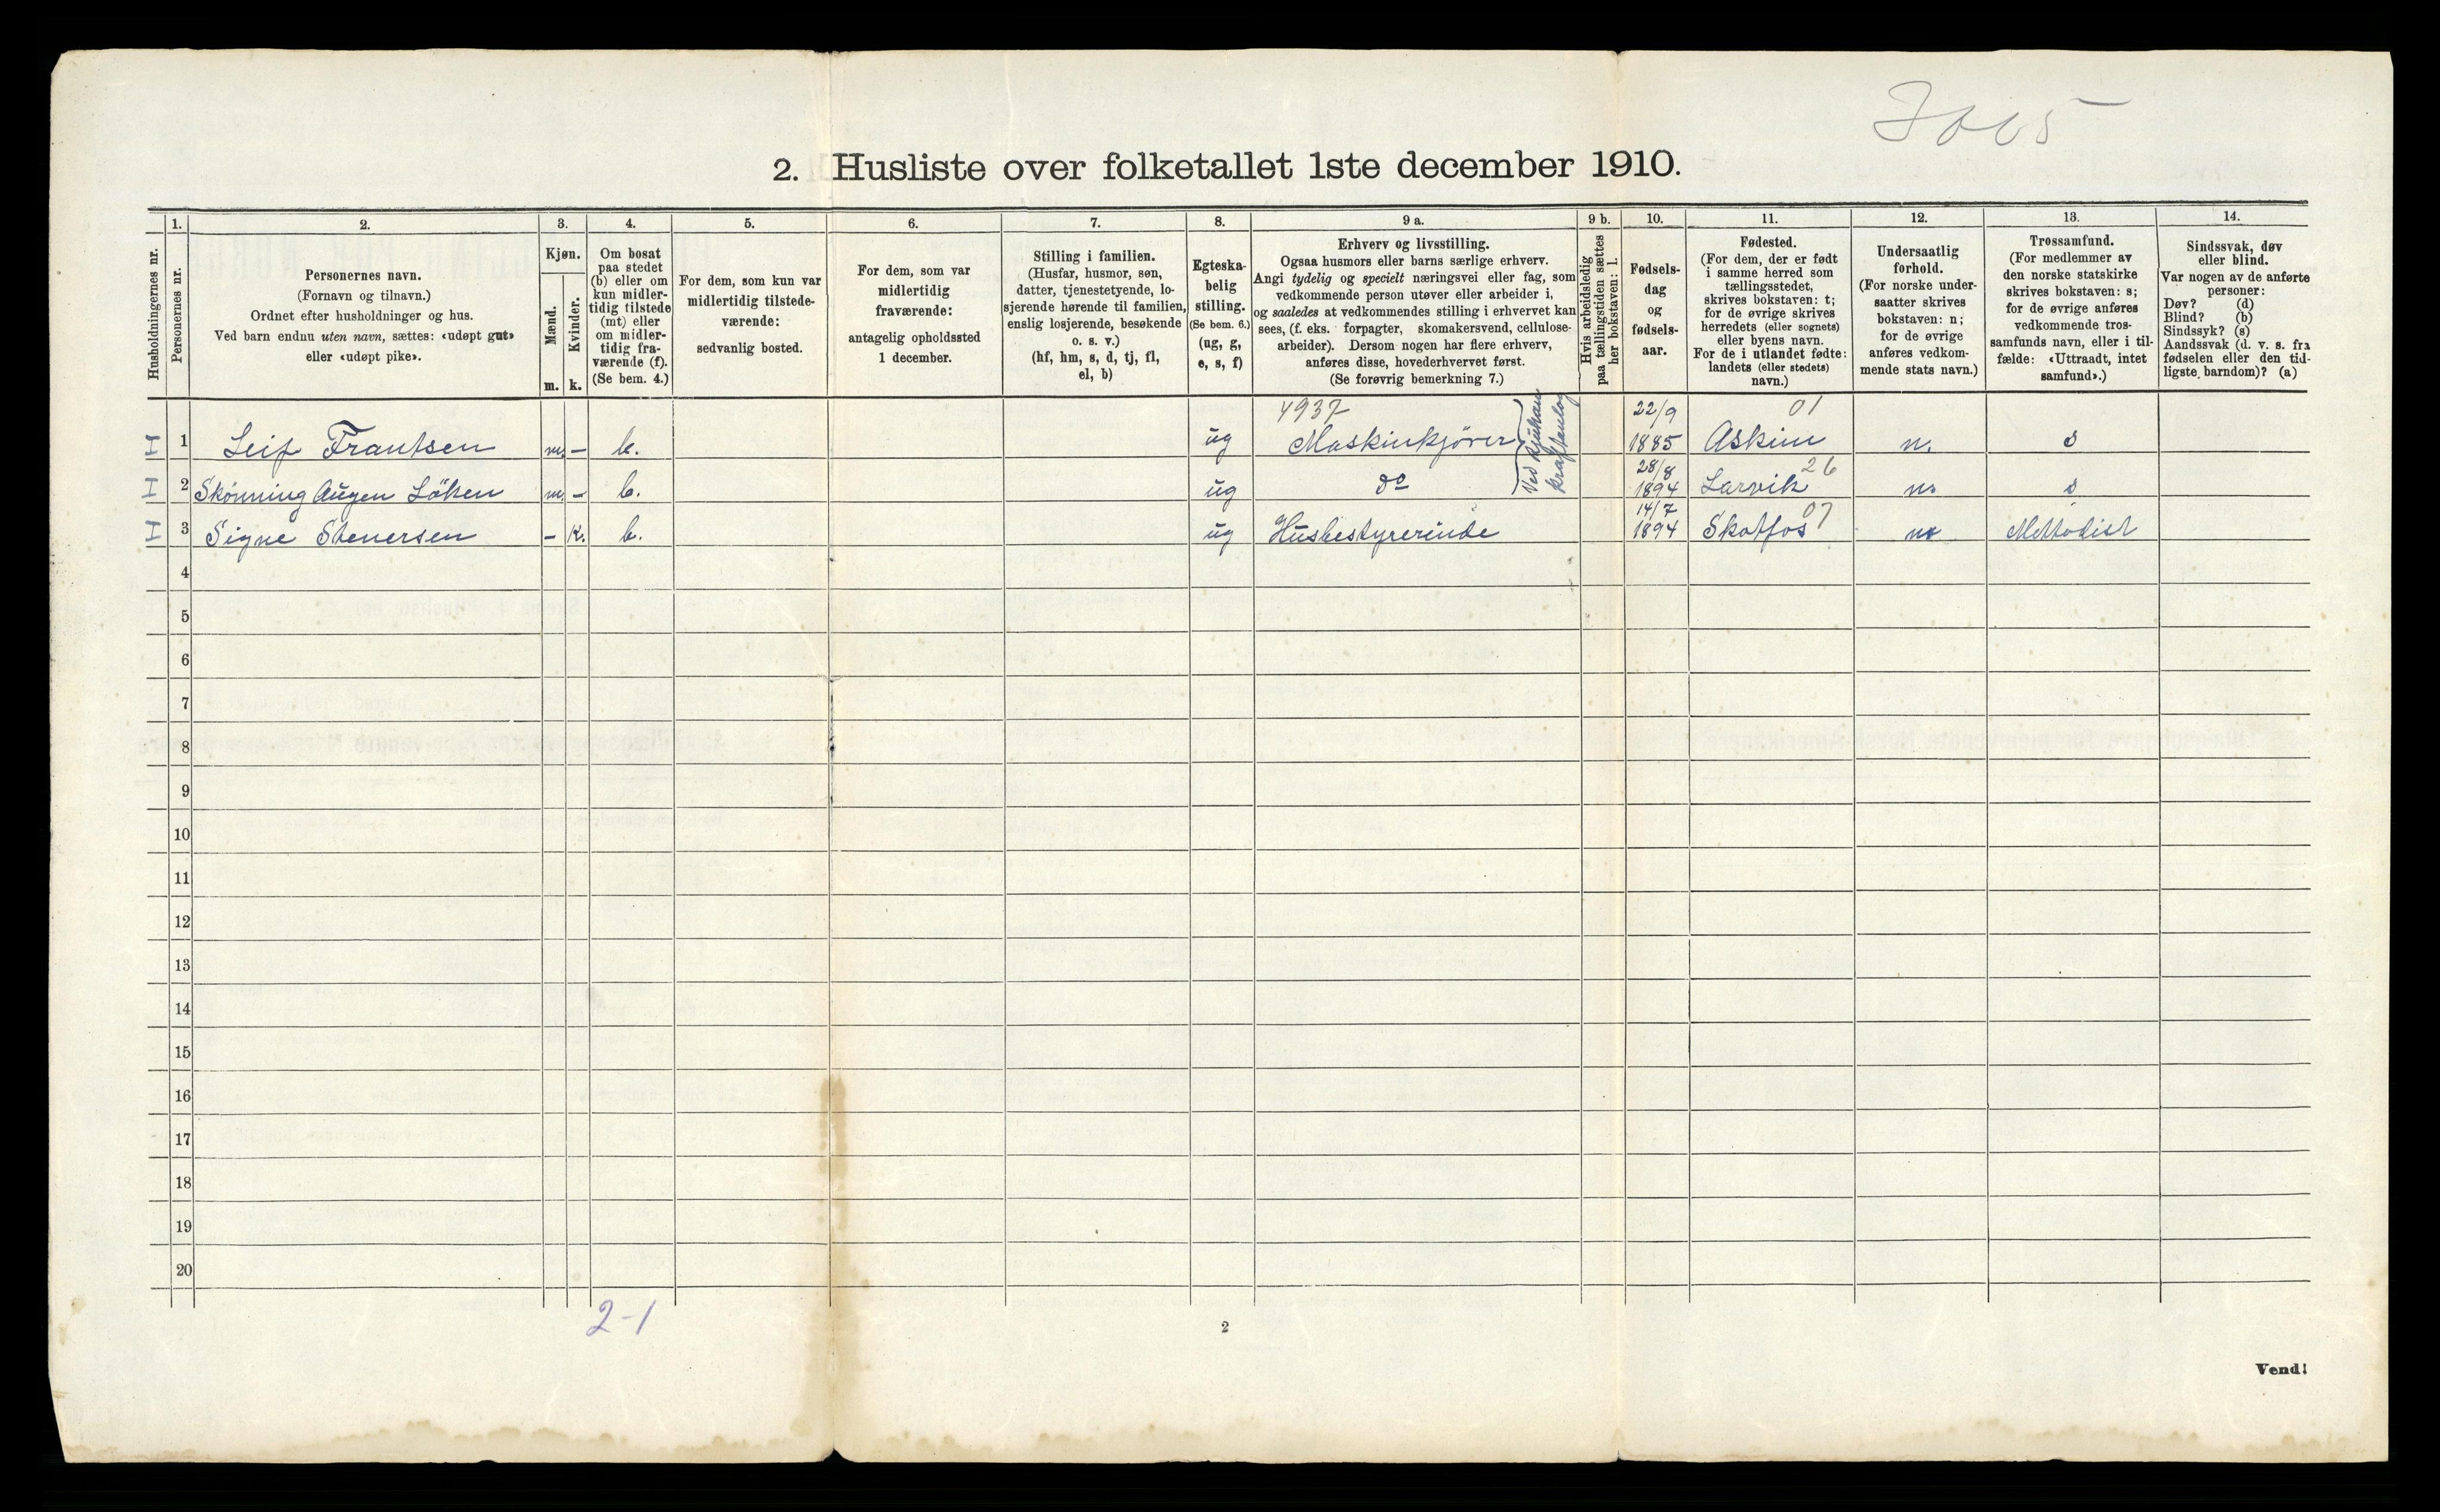 2. Husliste over folketallet 1ste december 1910.
1. 2. 3. 4. 5. 6. 7. 8. 9 a. 9 b. 10. 11. 12. 13. 14.
Husholdningernes nr.
Personernes nr.
Personernes navn.
(Fornavn og tilnavn.)
Ordnet efter husholdninger og hus.
Ved barn endnu uten navn, sættes: «udøpt gut»
eller «udøpt pike».
Kjøn.
Mænd.
Kvinder.
m. k.
Om bosat
paa stedet
(b) eller om
kun midler-
tidig tilstede
(mt) eller
om midler-
tidig fra-
værende (f).
(Se bem. 4.)
For dem, som kun var
midlertidig tilstede-
værende:
sedvanlig bosted.
For dem, som var
midlertidig
fraværende:
antagelig opholdssted
1 december.
Stilling i familien.
(Husfar, husmor, søn,
datter, tjenestetyende, lo-
sjerende hørende til familien,
enslig losjerende, besøkende
o. s. v.)
(hf, hm, s, d, tj, fl,
el, b)
Egteska-
belig
stilling.
(Se bem. 6.)
(ug, g,
e, s, f)
Erhverv og livsstilling.
Ogsaa husmors eller barns særlige erhverv.
Angi tydelig og specielt næringsvei eller fag, som
vedkommende person utøver eller arbeider i,
og saaledes at vedkommendes stilling i erhvervet kan
sees, (f. eks. forpagter, skomakersvend, cellulose-
arbeider). Dersom nogen har flere erhverv,
anføres disse, hovederhvervet først.
(Se forøvrig bemerkning 7.)
Hvis arbeidsledig
paa tællingstiden sættes
her bokstaven: l.
Fødsels-
dag
og
fødsels-
aar.
Fødested.
(For dem, der er født
i samme herred som
tællingsstedet,
skrives bokstaven: t;
for de øvrige skrives
herredets (eller sognets)
eller byens navn.
For de i utlandet fødte:
landets (eller stedets)
navn.)
Undersaatlig
forhold.
(For norske under-
saatter skrives
bokstaven: n;
for de øvrige
anføres vedkom-
mende stats navn.)
Trossamfund.
(For medlemmer av
den norske statskirke
skrives bokstaven: s;
for de øvrige anføres
vedkommende tros-
samfunds navn, eller i til-
fælde: «Uttraadt, intet
samfund».)
Sindssvak, døv
eller blind.
Var nogen av de anførte
personer:
Døv? (d)
Blind? (b)
Sindssyk? (s)
Aandssvak (d. v. s. fra
fødselen eller den tid-
ligste barndom)? (a)
4937 22/9 01
I 1 Leif Frantsen m. - b. ug Maskinkjörer 1885 Askim n. s
Ved Rjukan
kraftanlæg
28/8 26
I 2 Skönning Augen Löken m. - b. ug do 1894 Larvik n. s
14/7 07
I 3 Signe Stenersen - k. b. ug Husbestyrerinde 1894 Skotfos n Metodist
4
5
6
7
8
9
10
11
12
13
14
15
16
17
18
19
20
2-1
2
Vend!